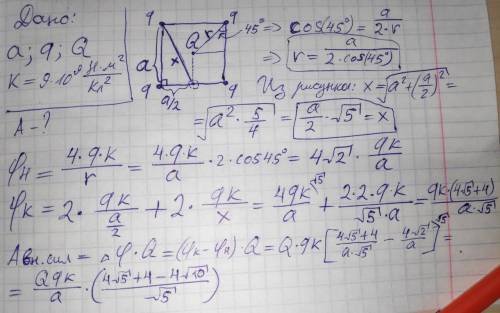 Дано:
a; q; Q
K = 9·10⁹ Н·м²/Кл²
A - ?
q q
Q r 45°
a x
q a/2 q
=> cos(45°) = a/(2·r)
=> r = a/(2·cos(45°))
Из рисунка: x = √(a² + (a/2)²) =
= √(a² · 5/4) = a/2 · √5 = x
φн = 4·q·k/r = 4·q·k/a · 2·cos45° = 4√2 · qk/a
φк = 2 · qk/(a/2) + 2 · qk/x = 4qk/a ^√5 + 2·2·qk/(√5·a) = qk·(4√5+4)/(a·√5)
Aвн.сил = Δφ·Q = (φк-φн)·Q = Q·qk[(4√5+4)/(a·√5) - 4√2/a ^√5] =
= Qqk/a · ((4√5+4-4√10)/√5)